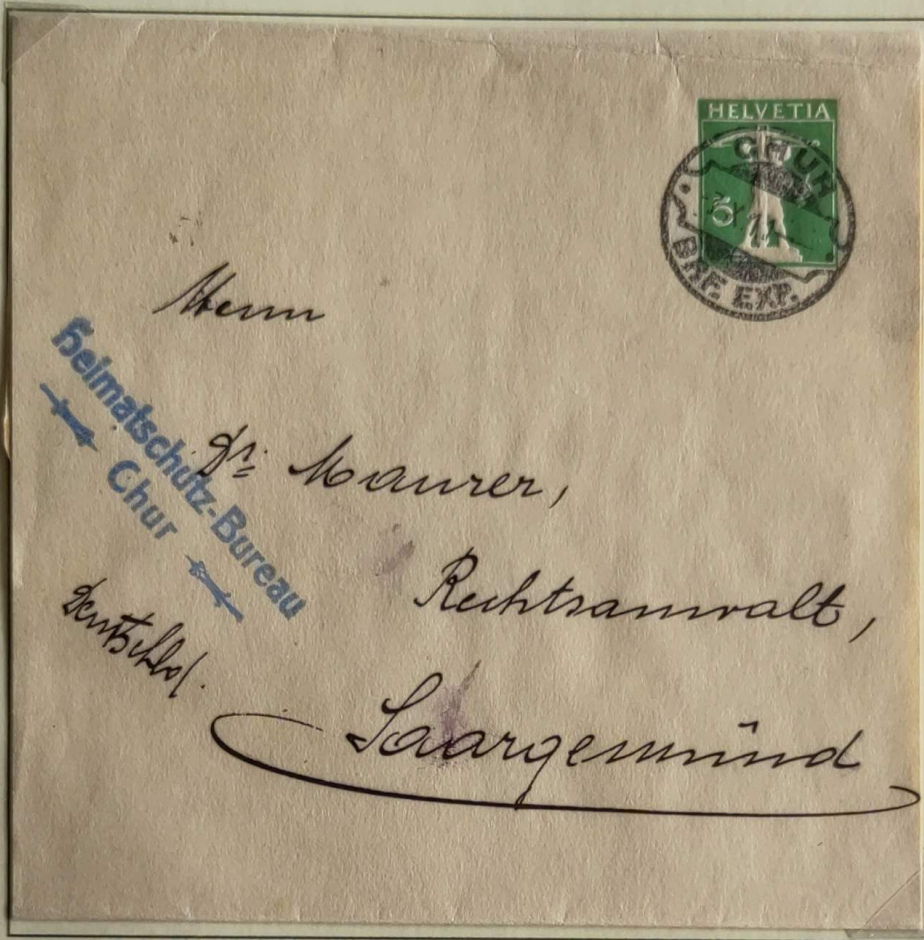 HELVETIA
5
CHUR
BRF. EXP.
Herrn
Heimatschutz-Bureau
Chur
Dr. Maurer,
Rechtsanwalt,
Deutschld.
Saargemünd